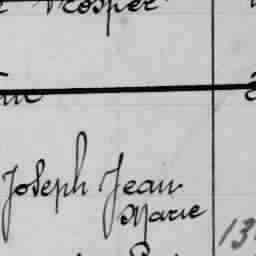 Prosper
Joseph Jean
Marie
13